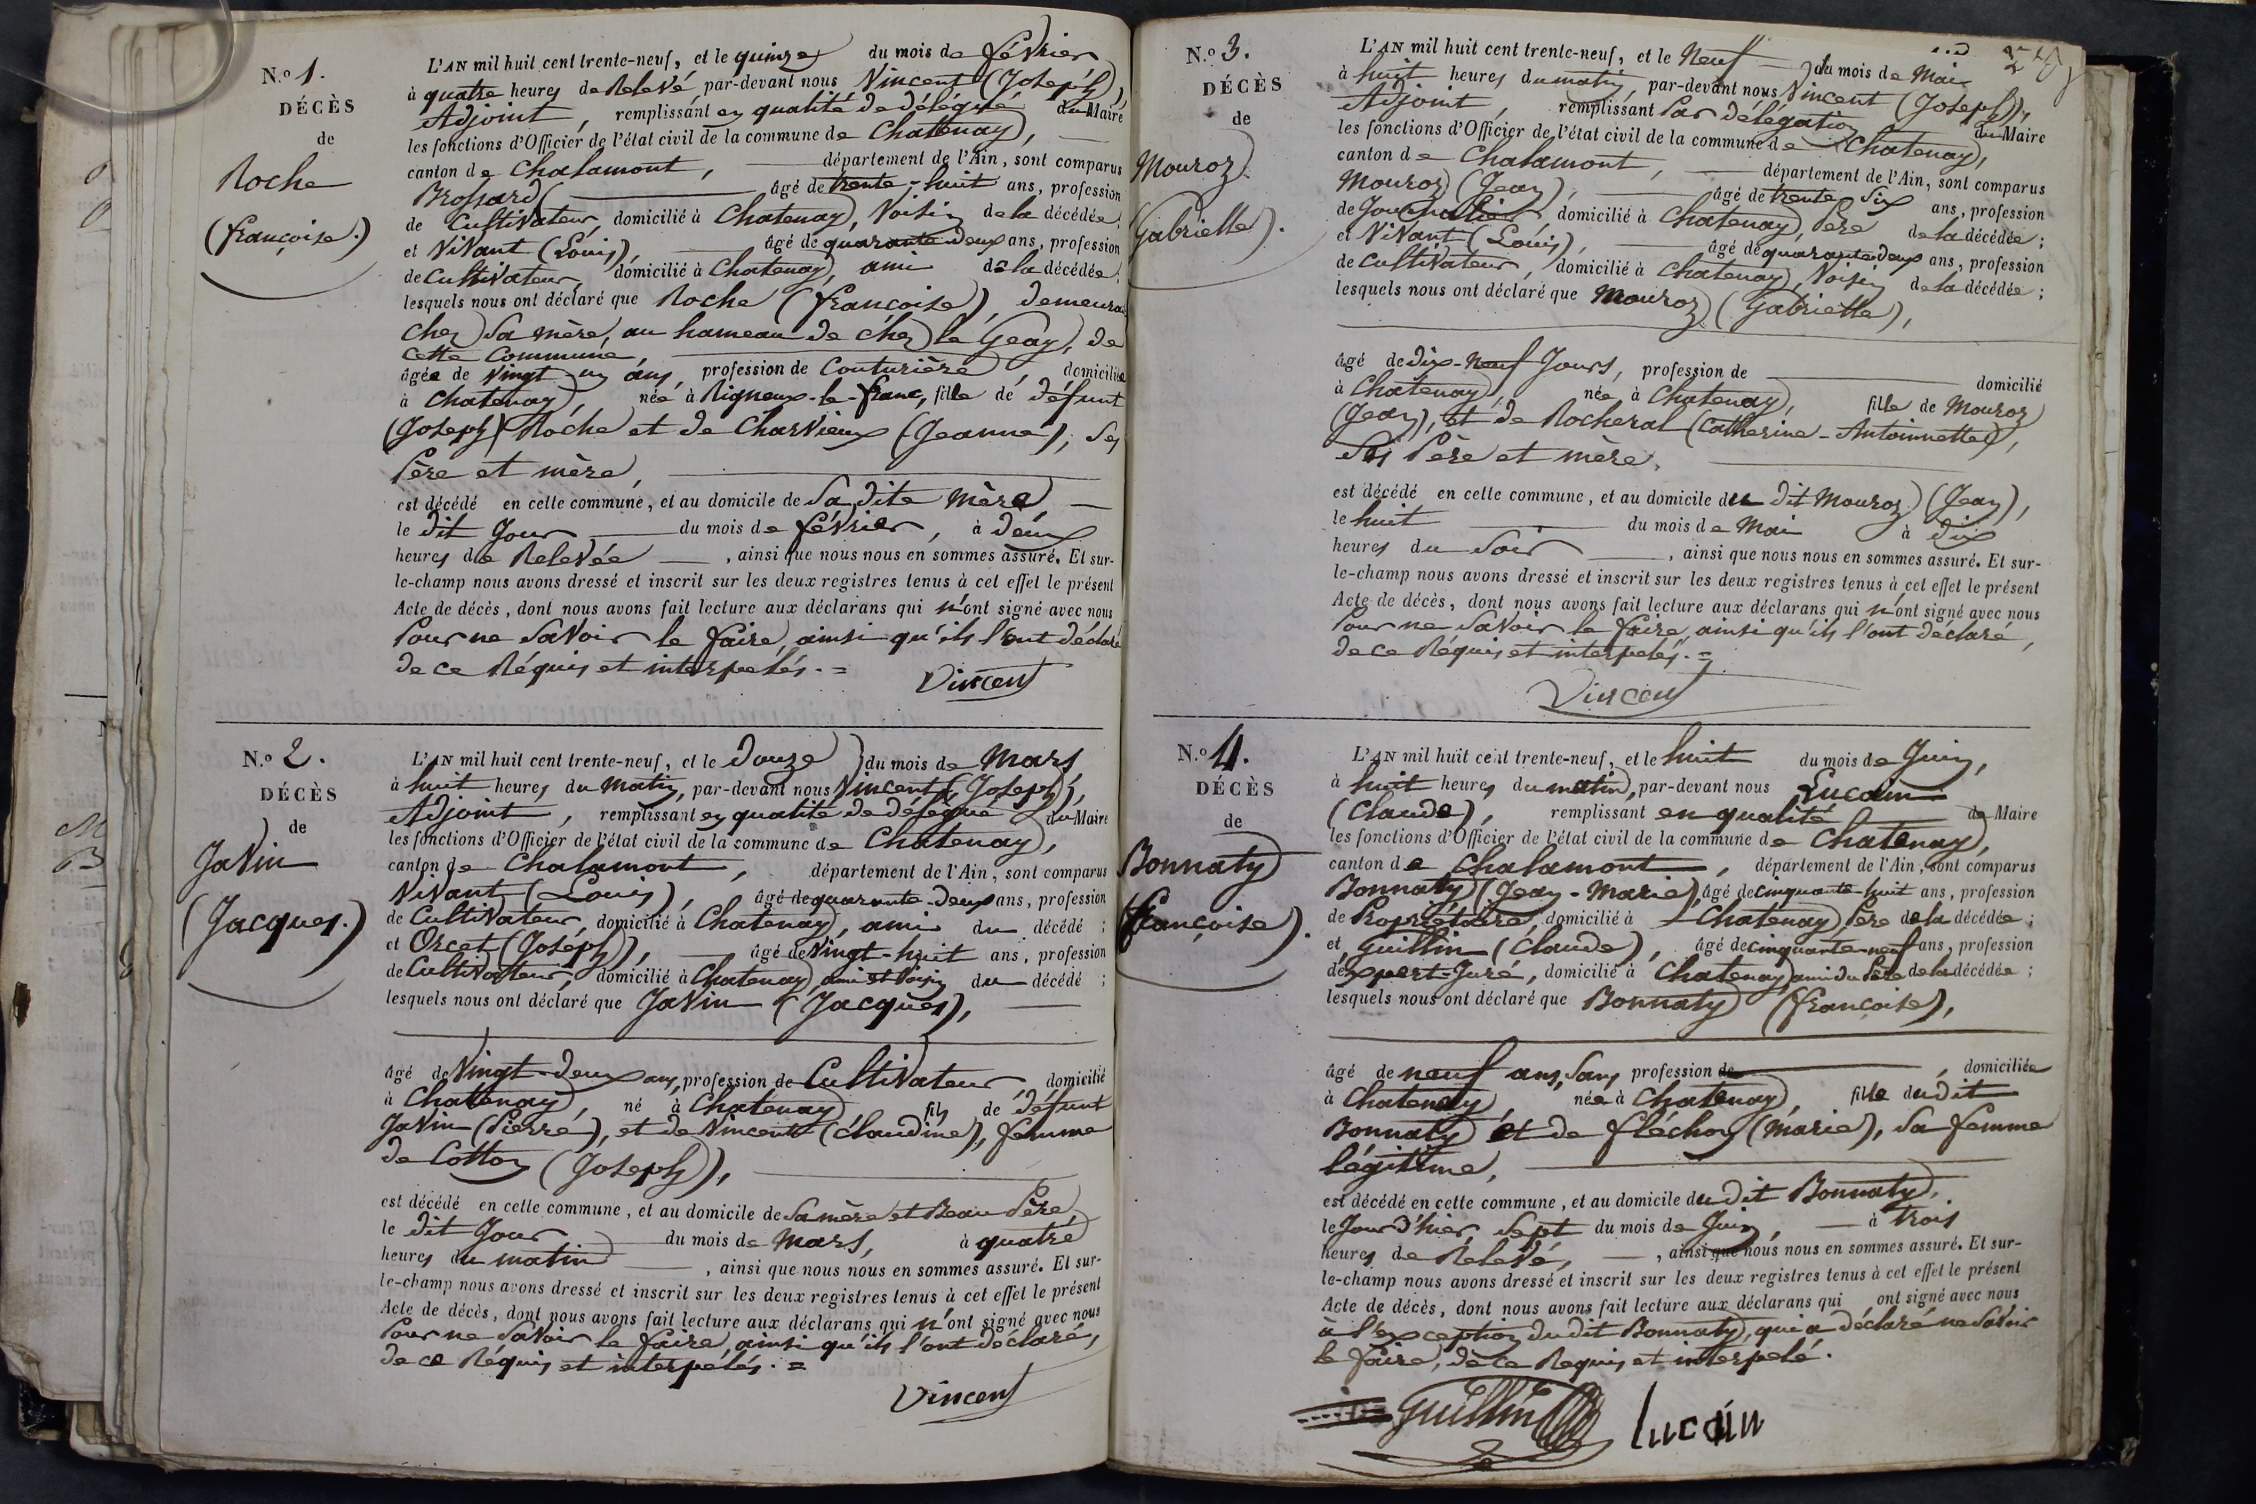 N.o 1.
DÉCÈS
de
Roche
(françoise.)
L'AN mil huit cent trente-neuf, et le quinze du mois de février
à quatre heures de Relevé, par-devant nous Vincent (Joseph),
Adjoint, remplissant en qualité de délégué du Maire
les fonctions d'Officier de l'état civil de la commune de Chatenay,
canton de Chalamont, département de l'Ain, sont comparus
Brossard âgé de trente-huit ans, profession
de Cultivateur, domicilié à Chatenay, Voisin de la décédée,
et Vivant (Louis), âgé de quarante-deux ans, profession
de Cultivateur, domicilié à Chatenay, ami de la décédée,
lesquels nous ont déclaré que Roche (françoise), demeurant
chez sa mère, au hameau de chez le Geay, de
cette Commune,
âgée de vingt-un ans, profession de Couturière, domiciliée
à Chatenay, née à Rigneux-le-franc, fille de défunt
(Joseph) Roche et de Charvieux (Jeanne), ses
Père et mère,
est décédé en cette commune, et au domicile de sa dite Mère
le dit Jour du mois de février, à deux
heures de Relevée, ainsi que nous nous en sommes assuré. Et sur-
le-champ nous avons dressé et inscrit sur les deux registres tenus à cet effet le présent
Acte de décès, dont nous avons fait lecture aux déclarans qui n'ont signé avec nous
Pour ne savoir le faire, ainsi qu'ils l'ont déclaré
de ce Réquis et interpelés. =
Vincent
N.o 2.
DÉCÈS
de
Javin
(Jacques.)
L'AN mil huit cent trente-neuf, et le douze du mois de Mars
à huit heures du matin, par-devant nous Vincent (Joseph),
Adjoint, remplissant en qualité de délégué du Maire
les fonctions d'Officier de l'état civil de la commune de Chatenay,
canton de Chalamont, département de l'Ain, sont comparus
Vivant (Louis), âgé de quarante-deux ans, profession
de Cultivateur, domicilié à Chatenay, ami du décédé ;
et Orcet (Joseph), âgé de Vingt-huit ans, profession
de Cultivateur, domicilié à Chatenay ami et Voisin du décédé ;
lesquels nous ont déclaré que Javin (Jacques),
âgé de Vingt-deux ans, profession de Cultivateur, domicilié
à Chatenay, né à Chatenay fils de défunt
Javin (Pierre), et de Vincent (Claudine), femme
de Cotton (Joseph),
est décédé en cette commune, et au domicile de sa mère et Beau Père
le dit Jour du mois de Mars, à quatre
heures du matin, ainsi que nous nous en sommes assuré. Et sur-
le-champ nous avons dressé et inscrit sur les deux registres tenus à cet effet le présent
Acte de décès, dont nous avons fait lecture aux déclarans qui n'ont signé avec nous
Pour ne savoir le faire, ainsi qu'ils l'ont déclaré,
de ce Réquis et interpelés. =
Vincent
N.o 3.
DÉCÈS
de
Mouroz
(Gabrielle).
L'AN mil huit cent trente-neuf, et le Neuf du mois de Mai
à huit heures du matin, par-devant nous Vincent (Joseph),
Adjoint, remplissant Par délégation du Maire
les fonctions d'Officier de l'état civil de la commune de Chatenay,
canton de Chalamont, département de l'Ain, sont comparus
Mouroz (Jean), âgé de trente Six ans, profession
de Journalier, domicilié à Chatenay, Père de la décédée ;
et Vivant (Louis), âgé de quarante-deux ans, profession
de Cultivateur, domicilié à Chatenay, Voisin de la décédée ;
lesquels nous ont déclaré que Mouroz (Gabrielle),
âgé de dix-Neuf Jours, profession de domicilié
à Chatenay, née à Chatenay, fille de Mouroz
(Jean), Et de Rocheral (Catherine-Antoinnette),
Ses Père et mère.
est décédé en cette commune, et au domicile du dit Mouroz (Jean),
le huit du mois de Mai à dix
heures du Soir, ainsi que nous nous en sommes assuré. Et sur-
le-champ nous avons dressé et inscrit sur les deux registres tenus à cet effet le présent
Acte de décès, dont nous avons fait lecture aux déclarans qui n'ont signé avec nous
Pour ne savoir le faire, ainsi qu'ils l'ont déclaré,
de ce Réquis et interpelés. =
Vincent
N.o 4.
DÉCÈS
de
Bonnaty
(françoise).
L'AN mil huit cent trente-neuf, et le huit du mois de Juin,
à huit heures du matin, par-devant nous Lucain
(Claude), remplissant en qualité de Maire
les fonctions d'Officier de l'état civil de la commune de Chatenay,
canton de Chalamont, département de l'Ain, sont comparus
Bonnaty (Jean-Marie), âgé de cinquante-huit ans, profession
de Propriétaire, domicilié à Chatenay, Père de la décédée ;
et Guillin (Claude), âgé de cinquante-neuf ans, profession
d'expert-Juré, domicilié à Chatenay, ami du Père de la décédée ;
lesquels nous ont déclaré que Bonnaty (françoise),
âgé de neuf ans, Sans profession de, domiciliée
à Chatenay, née à Chatenay, fille du dit
Bonnaty et de fléchon (Marie), sa femme
légitime,
est décédé en cette commune, et au domicile du dit Bonnaty,
le Jour d'hier, sept du mois de Juin, à trois
heures de Relevé, ainsi que nous nous en sommes assuré. Et sur-
le-champ nous avons dressé et inscrit sur les deux registres tenus à cet effet le présent
Acte de décès, dont nous avons fait lecture aux déclarans qui ont signé avec nous
à l'exception du dit Bonnaty, qui a déclaré ne savoir
le faire, de ce Requis et interpelé.
Guillin Lucain